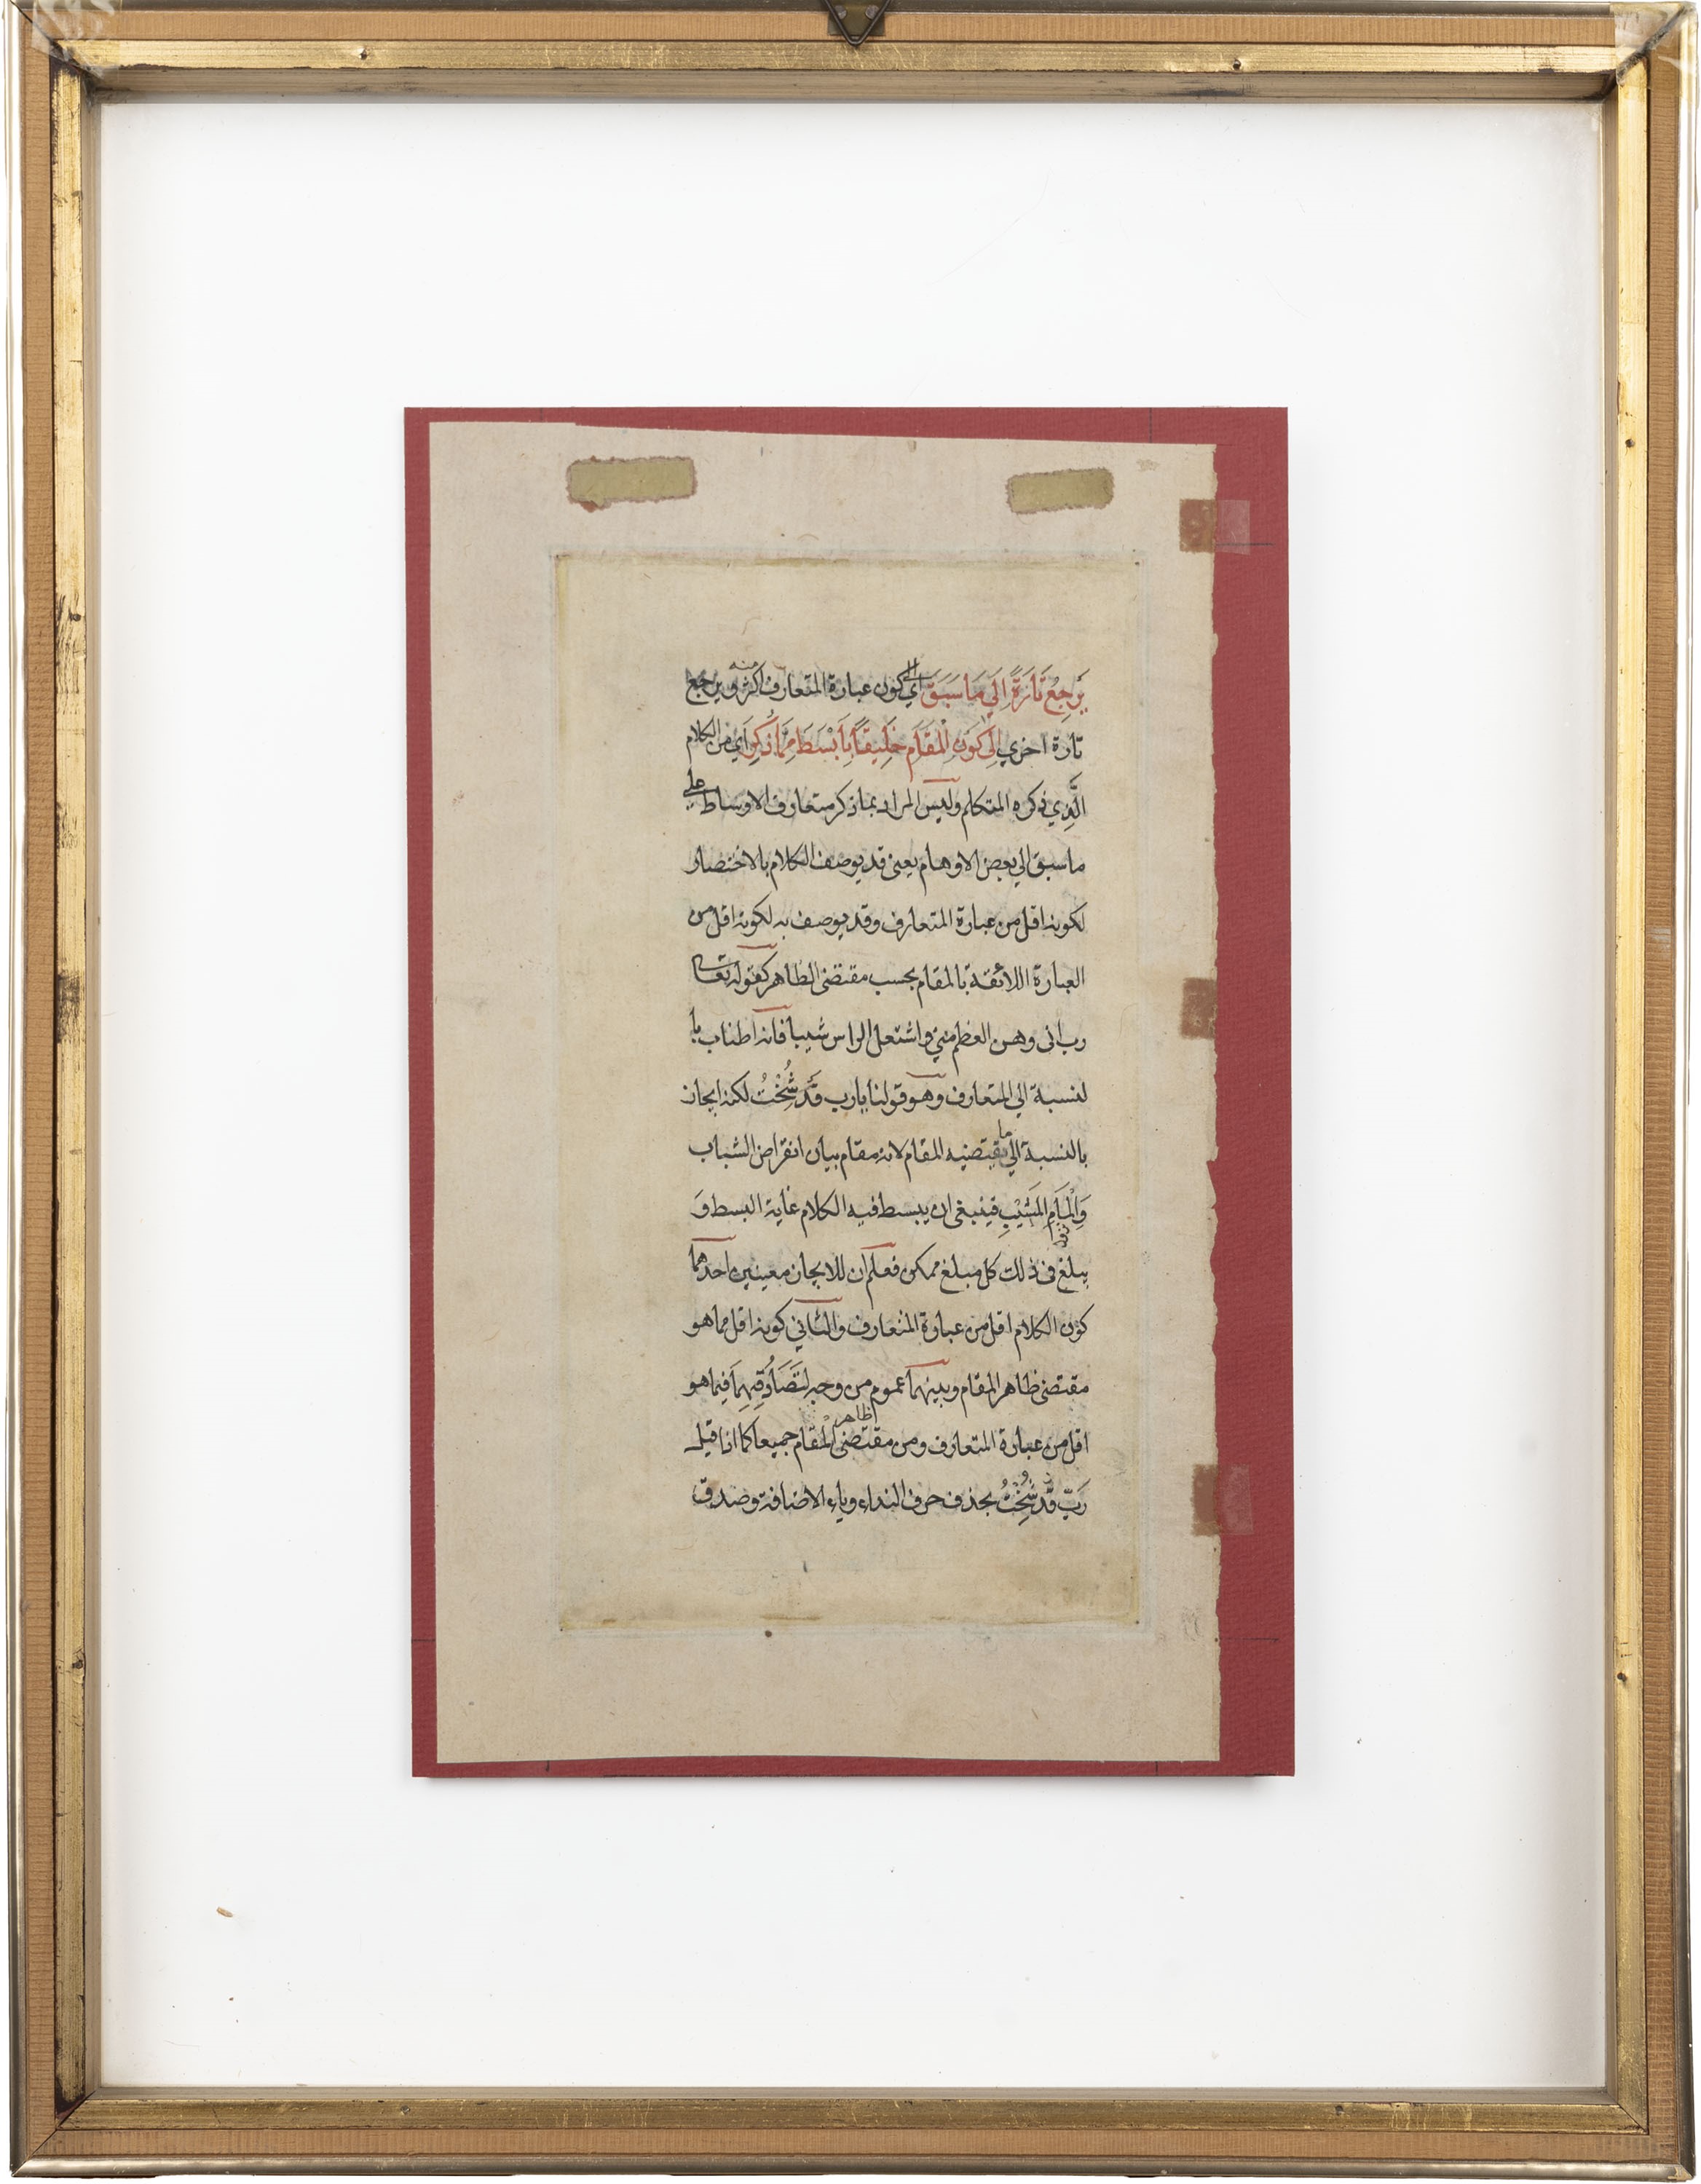 يَرجِعُ تَارَةً اِلَي مَا سَبَقَ اي الي كون عبارة المتعارف اكثر منه ويرجع
تارة اخري اِلَي كَوْنِ الْمَقَامِ خَلِيقًا بِاَبْسَطَ مِمَّا ذُكِرَ اي من الكلام
الَّذِي ذكره المتكلم وليس المراد بما ذكر متعارف الاوساط علي
ما سبق الي بعض الاوهام يعني قد يوصف الكلام بالاختصار
لكونه اقل من عبارة المتعارف وقد يوصف به لكونه اقل من
العبارة اللائقة بالمقام بحسب مقتضي الظاهر كقوله تعالي
رب اني وهن العظم مني واشتعل الراس شيبا فانه اطناب با
لنسبة الي المتعارف وهو قولنا يا رب قَد شُخْتُ لكنه ايجاز
بالنسبة الي ما يقتضيه المقام لانه مقام بيان انقراض الشباب
وَاِلْمَامِ الْمَشِيْبِ فينبغي ان يبسط فيه الكلام غاية البسط وَ
يبلغ في ذلك كل مبلغ ممكن فعلم ان للايجاز معنيين احدهما
كون الكلام اقل من عبارة المتعارف والثاني كونه اقل مما هو
مقتضي ظاهر المقام وبينهما عموم من وجه لِتَصَادُقِهِمَا فيما هو
اقل من عبارة المتعارف ومن مقتضي ظاهر المقام جميعا كما اذا قيل
رَبِّ قَد شُخْتُ بحذف حرف النداء وياء الاضافة وصدق